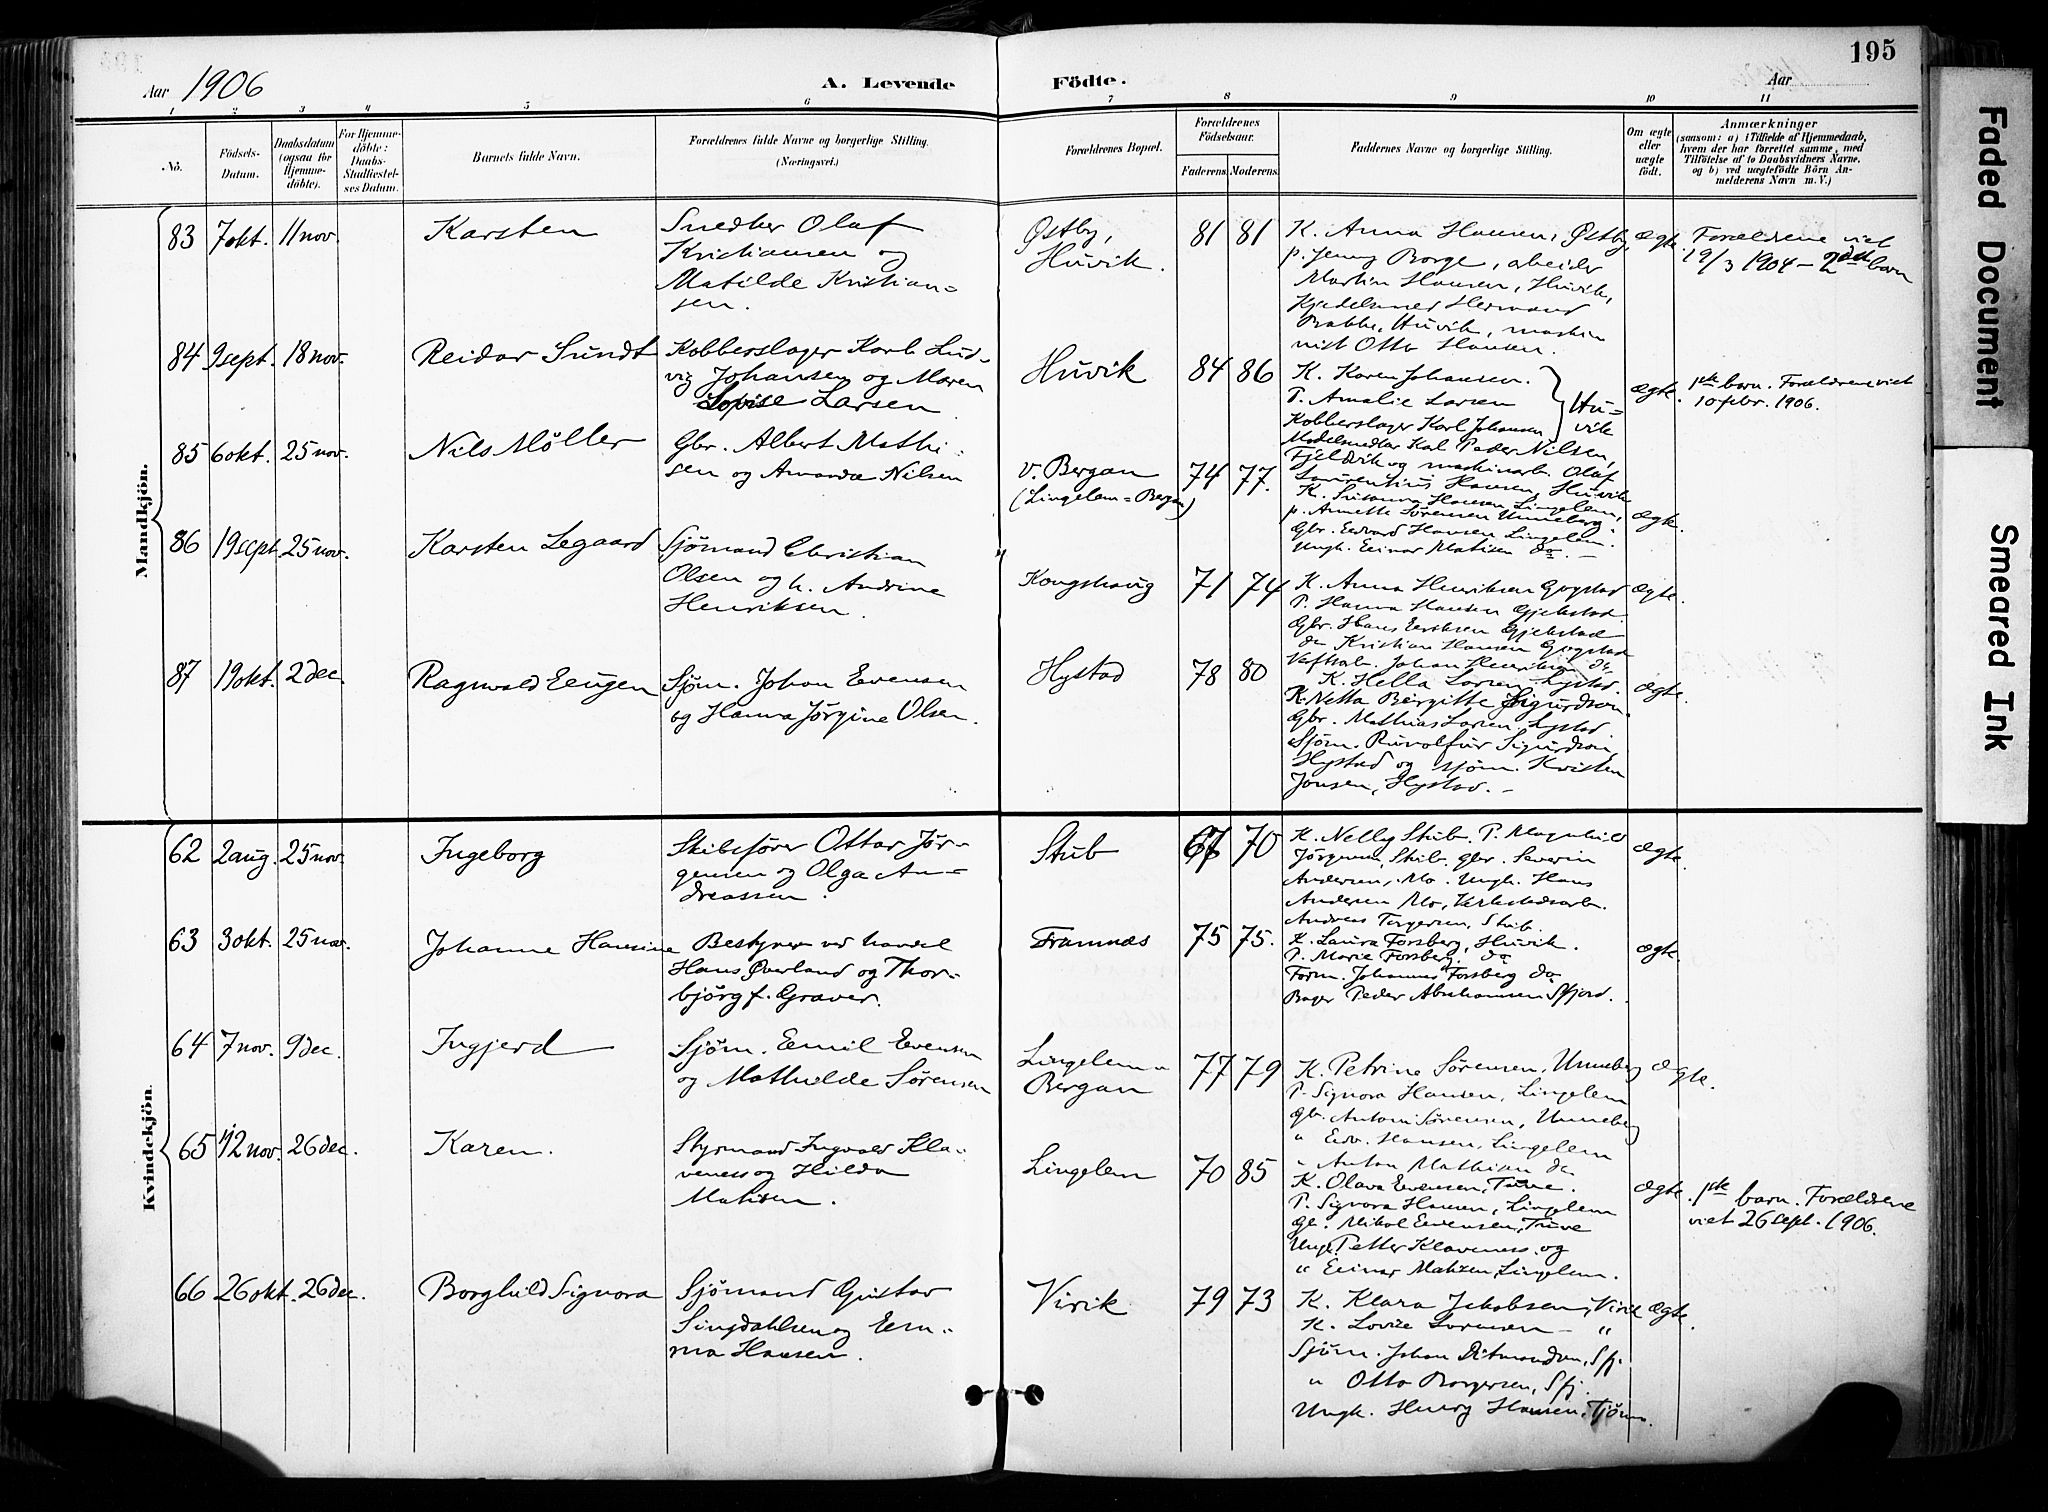 195
Aar 1906
A. Levende Födte.
Aar
1 2 3 4 5 6 7 8 9 10 11
No.
Födsels-
Datum.
Daabsdatum
(ogsaa for
Hjemme-
döbte).
For Hjemme-
döbte:
Daabs-
Stadfæstel-
ses Datum.
Barnets fulde Navn.
Forældrenes fulde Navne og borgerlige Stilling.
(Næringsvei.)
Forældrenes Bopæl.
Forældrenes
Födselsaar.
Faderens. Moderens.
Faddernes Navne og borgerlige Stilling.
Om ægte
eller
uægte
födt.
Anmærkninger
(saasom: a) i Tilfælde af Hjemmedaab,
hvem der har forrettet samme, med
Tilföielse af to Daabsvidners Navne,
og b) ved uægtefödte Börn An-
melderens Navn m. V.)
Mandkjön.
83 7 okt. 11 nov. Karsten
Snedker Olaf
Kristiansen og
Matilde Kristian=
sen.
Østby,
Huvik.
81 81
K. Anna Hansen, Østby,
p. Jenny Borge, arbeider
Martin Hansen, Huvik,
Kjedelsmed Hermand
Babbe, Huvik, maskin
nist Otto Hansen.
ægte.
Forældrene viet
19/3 1904 – 2det barn
84 9 sept. 18 nov. Reidar Sundt
Kobberslager Karl Lud-
vig Johansen og Maren
Lovise Larsen
Huvik
84 86
K. Karen Johansen.
P. Amalie Larsen
Kobberslager Karl Johansen
Hu=
vik
Modelsnedker Karl Peder Nilsen,
Fjeldvik og maskinarb. Olaf
Laurentius Hansen, Huvik
ægte.
1ste barn. Forældrene viet
10 febr. 1906.
85 6 okt. 25 nov. Nils Møller
Gbr. Albert Mathi-
sen og Amanda Nilsen
v. Bergan
(Lingelem=Bergan)
74 77.
K. Susanna Hansen, Lingelem,
p. Annette Sørensen Unneberg.
Gbr. Edvard Hansen Lingelem.
Ungk. Einar Matisen do. –
ægte.
86 19 sept. 25 nov. Karsten Legaard
Sjømand Christian
Olsen og h. Andrine
Henriksen.
Kongshaug
71 74
K. Anna Henriksen Gogstad
P. Hanna Hansen Gjekstad.
Gbr. Hans Eriksen Gjekstad
do Kristian Hansen Gogstad
Johan Henriksen do
ægte.
87 19 okt. 2 dec. Ragnvald Eugen
Sjøm. Johan Evensen
og Hanna Jørgine Olsen.
Hystad
78 80
K. Hella Larsen, Hystad.
K. Netta Birgitte Sigurdson
Gbr. Mathias Larsen, Hystad.
Sjøm. Runolfur Sigurdson,
Hystad og sjøm. Kristen
Jonsen, Hystad. –
ægte.
Kvindekjön.
62 2 aug. 25 nov. Ingeborg
Skibsfører Ottar Jør-
gensen og Olga An=
dreassen.
Stub
67 70
K. Nelly Stub. P. Magnhild
Jörgensen, Stub. gbr. Severin
Andersen, Mo. Ungk. Hans
Andersen Mo, Verkstedsarb.
Andreas Torgersen, Stub.
ægte.
63 3 okt. 25 nov. Johanne Hansine
Bestyrer ved handel
Hans Øverland og Thor-
bjørg f. Graver.
Framnæs
75 75.
K. Laura Forsberg, Huvik.
P. Marie Forsberg. do
Form. Johannes Forsberg do
Bager Peder Abrahamsen Sfjord.
ægte.
64 7 nov. 9 dec. Ingjerd
Sjøm. Emil Evensen
og Mathilde Sørensen
Lingelem=
Bergan
77 79
K. Petrine Sørensen, Unneberg
P. Signora Hansen, Lingelem
gbr. Anton Sørensen, Unneberg
" Edv. Hansen, Lingelem
" Anton Mathisen do
ægte.
65 12 nov. 26 dec. Karen.
Styrmand Ingvald Kla-
veness og Hilda
Matisen.
Lingelem
70 85
K. Olava Evensen, Tuve.
P. Signora Hansen, Lingelem
Gb. Mikal Evensen, Tuve
Ungk. Petter Klaveness og
" Einar Matisen, Lingelem.
ægte.
1ste barn. Forældrene
viet 26 sept. 1906.
66 26 okt. 26 dec. Borghild Signora
Sjømand Gustav
Singdahlsen og Em-
ma Hansen.
Virik
79 73
K. Klara Jakobsen, Virik
K. Lovise Sørensen – "
Sjøm. Johan Ditmandsen, Sfj.
" Otto Borgersen, Sfj.
Ungk. Henry Hansen, Tjømø.
ægte.
Faded Document
Smeared Ink